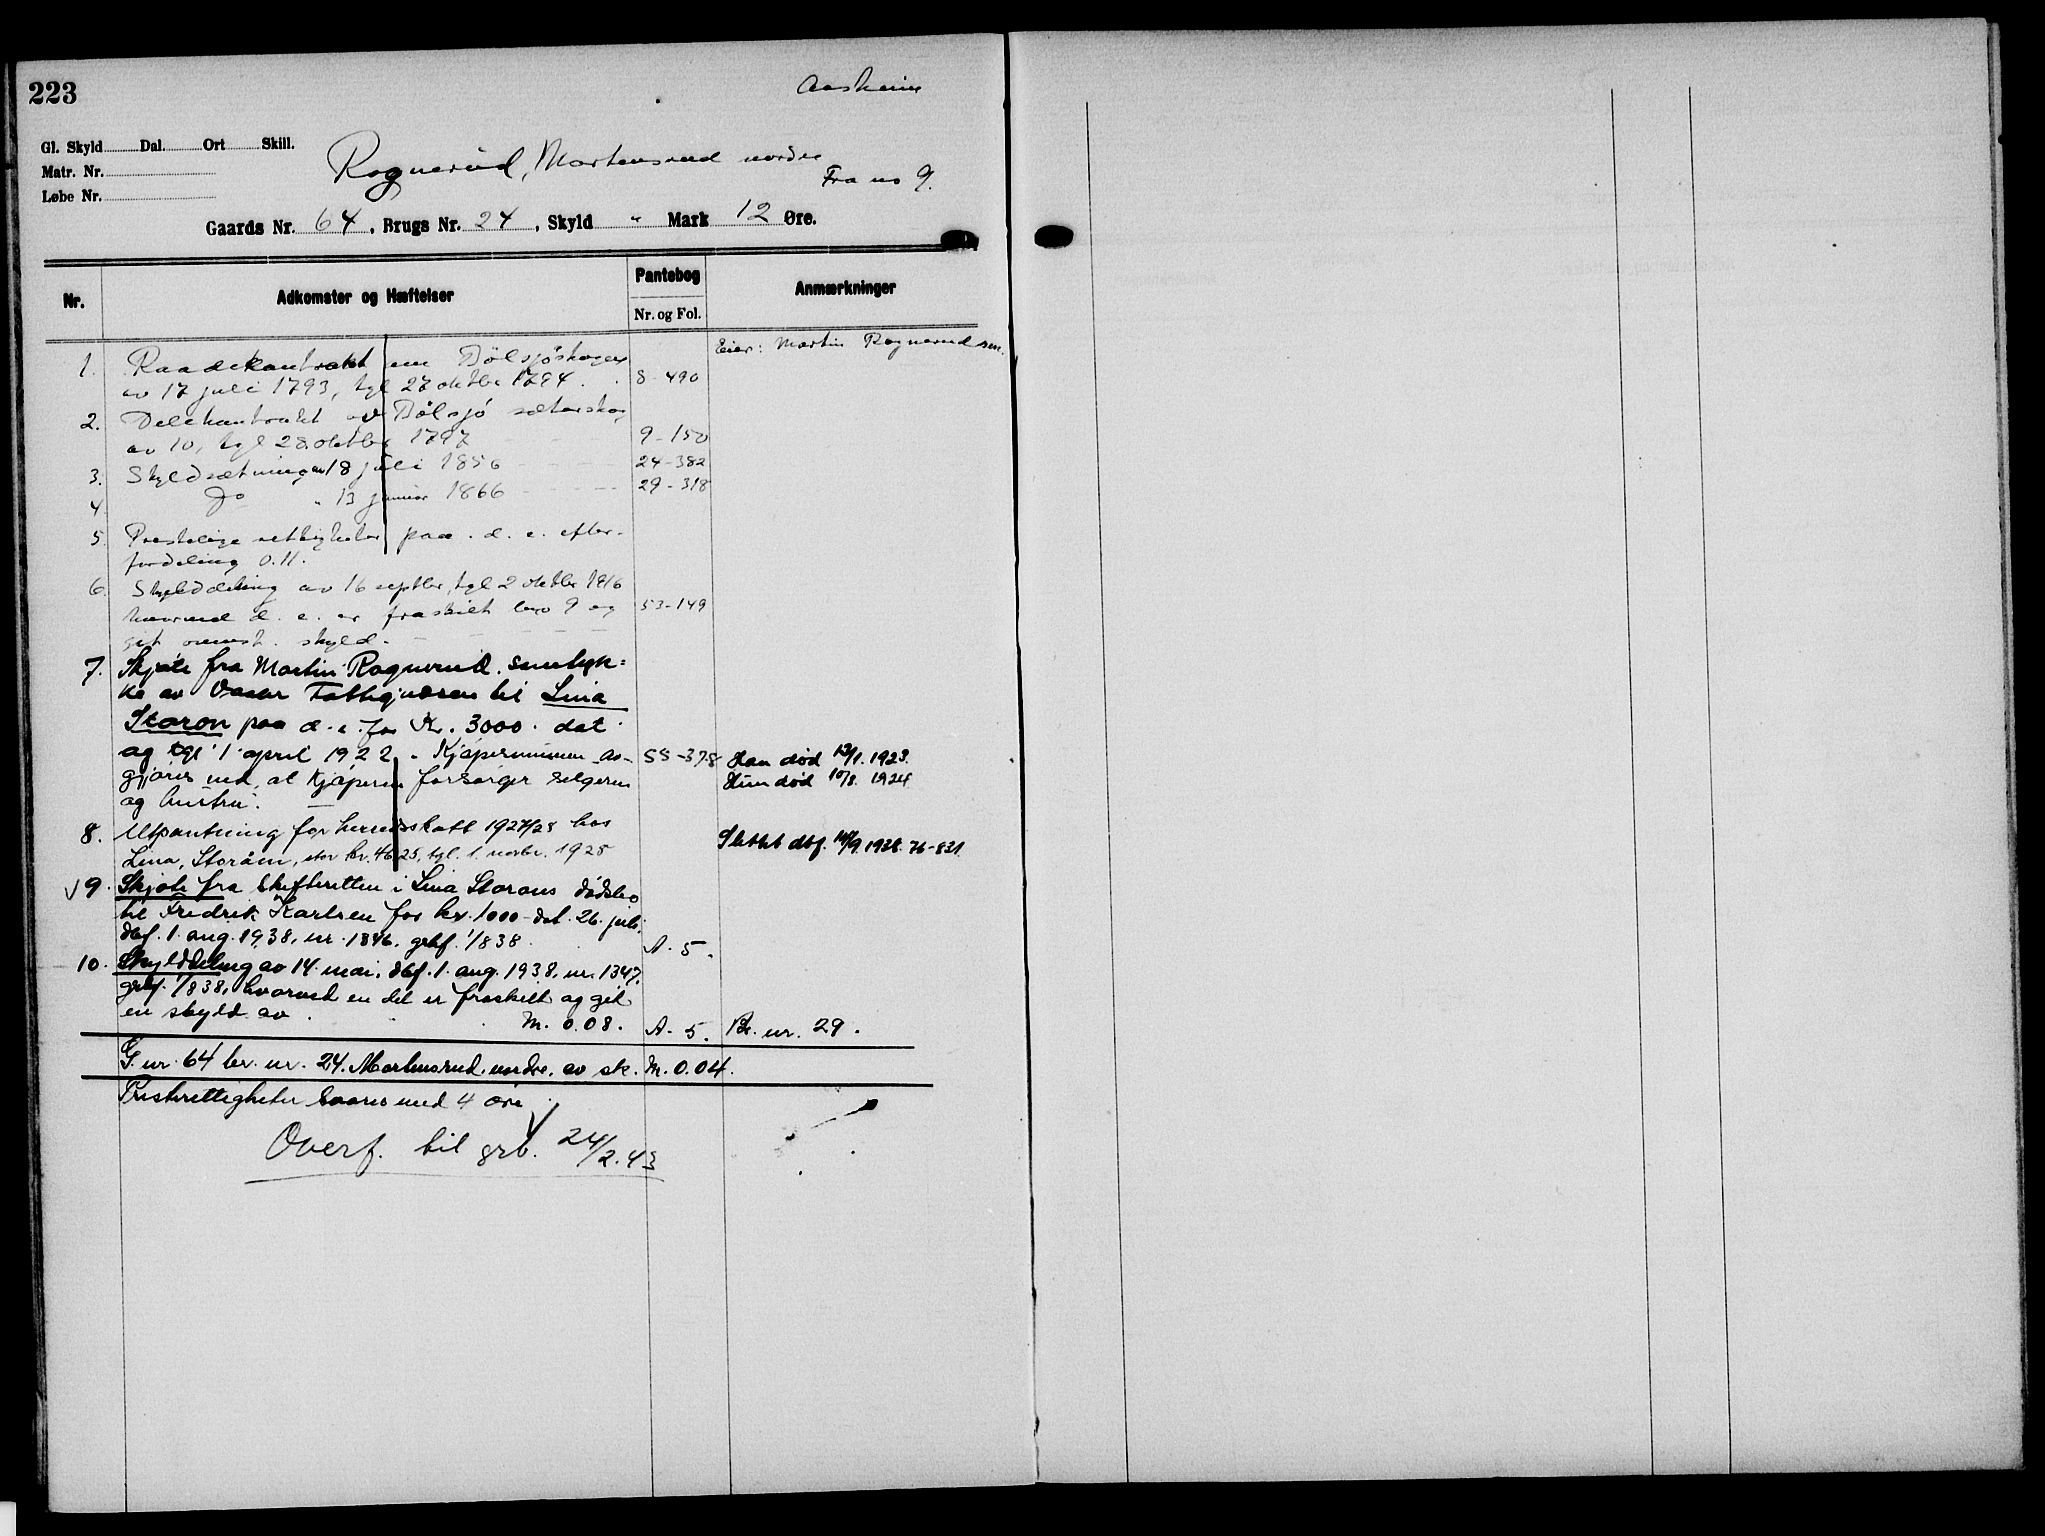 223
Aasheim
Gl. Skyld Dal. Ort Skill.
Matr. Nr.
Løbe Nr.
Rognerud, Martensrud nordre
Fra no 9.
Gaards Nr. 64, Brugs Nr. 24, Skyld " Mark 12 Øre.
Nr. Adkomster og Hæftelser Pantebog Nr. og Fol. Anmærkninger
Eier: Martin Rognerud
1. Raadekontrakt om Bölsjöskogen
av 17 juli 1793, tgl 27 oktbr 1794. 8-490
2. Delekontrakt over Bölsjö sæterskog
av 10, tgl 28 oktbr 1797 9-150
3. Skyldsætning av 18 juli 1856 24-382
4. Do " 13 januar 1866 29-318
5. Prestelige rettigheter paa d. e. efter
fordeling 0.11.
6. Skylddeling av 16 septbr, tgl 2 oktbr 1916
hvorved d. e. er fraskilt bno 9 og 53-149
git ovenst. skyld.
7. Skjøte fra Martin Rognerud, samtyk-
ke av Vaaler Fattigvæsen til Lina
Storon paa d. e. for Kr. 3000. dat
og tgl 1 april 1922. Kjøpesummen av- 58-378 Han død 13/1. 1923.
gjøres ved, at kjøperen forsørger selgeren Hun død 10/8. 1924
og hustru.
8. Utpantning for herredsskatt 1927/28 hos
Lina Storåen, stor kr. 46,25, tgl. 1. novbr. 1928 Slettet dbf. 14/9. 1938. 76-831.
√ 9. Skjøte fra Skifteretten i Lina Storons dødsbo
til Fredrik Karlsen for kr. 1000 - dat. 26. juli,
dbf. 1. aug. 1938, nr. 1346. grbf. 1/8 38. A. 5.
10. Skylddeling av 14. mai, dbf. 1. aug. 1938, nr. 1347,
grbf. 1/8 38, hvorved en del er fraskilt og git
en skyld av M. 0.08. A. 5. Br. nr. 29.
G. nr. 64 br. nr. 24. Martensrud nordre. av sk. M. 0.04.
Presterettigheter svares med 4 øre
Overf. til grb. 24/2. 43